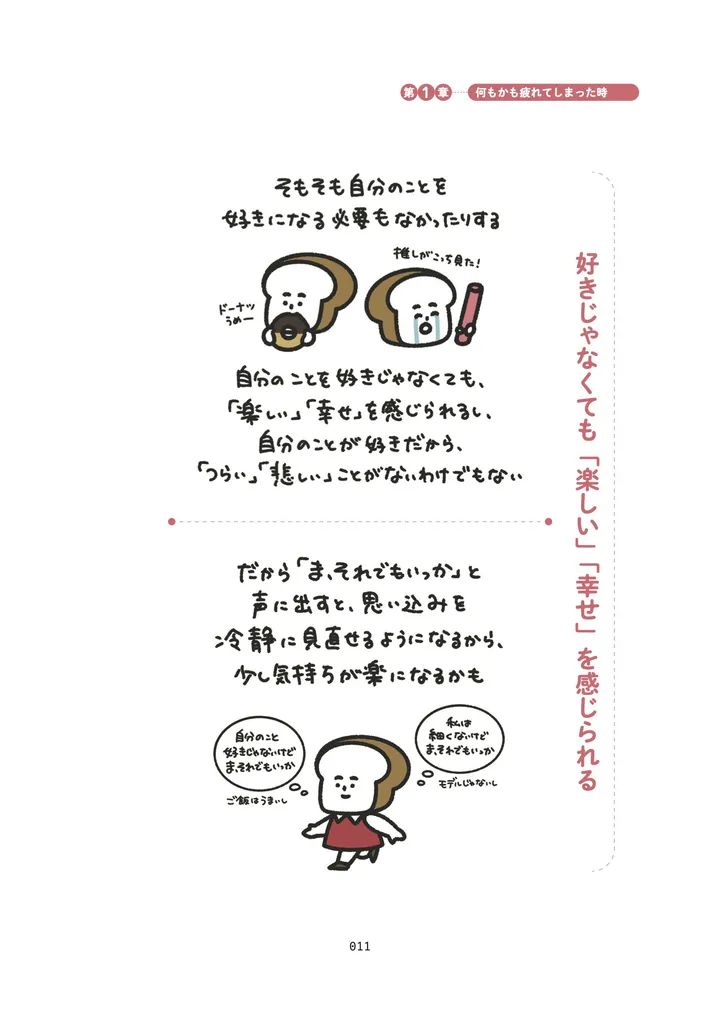 第1章 何もかも疲れてしまった時
好きじゃなくても「楽しい」「幸せ」を感じられる
そもそも自分のことを
好きになる必要もなかったりする
ドーナツ
うめー
推しがこっち見た!
自分のことを好きじゃなくても、
「楽しい」「幸せ」を感じられるし、
自分のことが好きだから、
「つらい」「悲しい」ことがないわけでもない
だから「ま、それでもいっか」と
声に出すと、思い込みを
冷静に見直せるようになるから、
少し気持ちが楽になるかも
自分のこと
好きじゃないけど
ま、それでもいっか
ご飯はうまいし
私は
細くないけど
ま、それでもいっか
モデルじゃないし
011